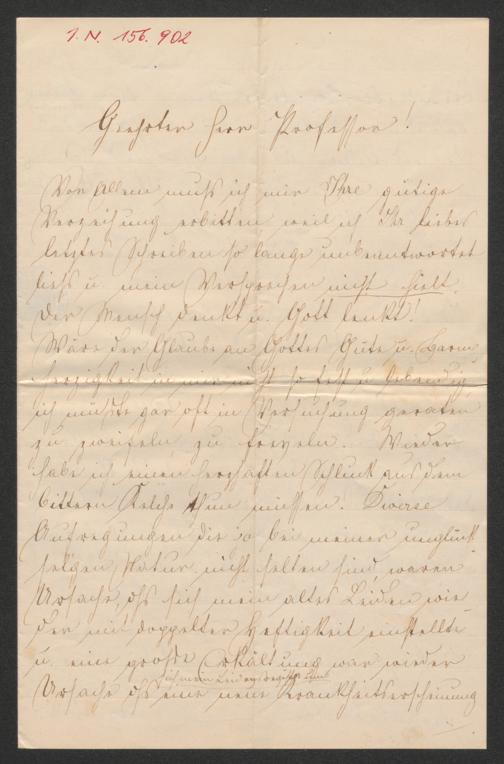 I. N. 156.902
Geehrter Herr Professor!
Vor Allem muß ich mir Ihre gütige
Verzeihung erbitten weil ich Ihr liebes
letztes Schreiben so lange unbeantwortet
ließ u. mein Versprechen nicht hielt.
Der Mensch denkt u. Gott lenkt!
Wäre der Glaube an Gottes Güte u. Barm
herzigkeit in mir nicht so fest u. lebendig,
ich müßte gar oft in Versuchung geraten
zu zweifeln, zu freveln. Wieder
habe ich einen herzhaften Schluck aus dem
bittern Kelche thun müssen. Diverse
Aufregungen die ja bei meiner unglück
seligen Natur nicht selten sind, waren
Ursache, daß sich mein altes Leiden wie
der mit doppelter Heftigkeit einstellte
u. eine große Erkältung war wieder
Ursache daß eine neue Krankheitserscheinung